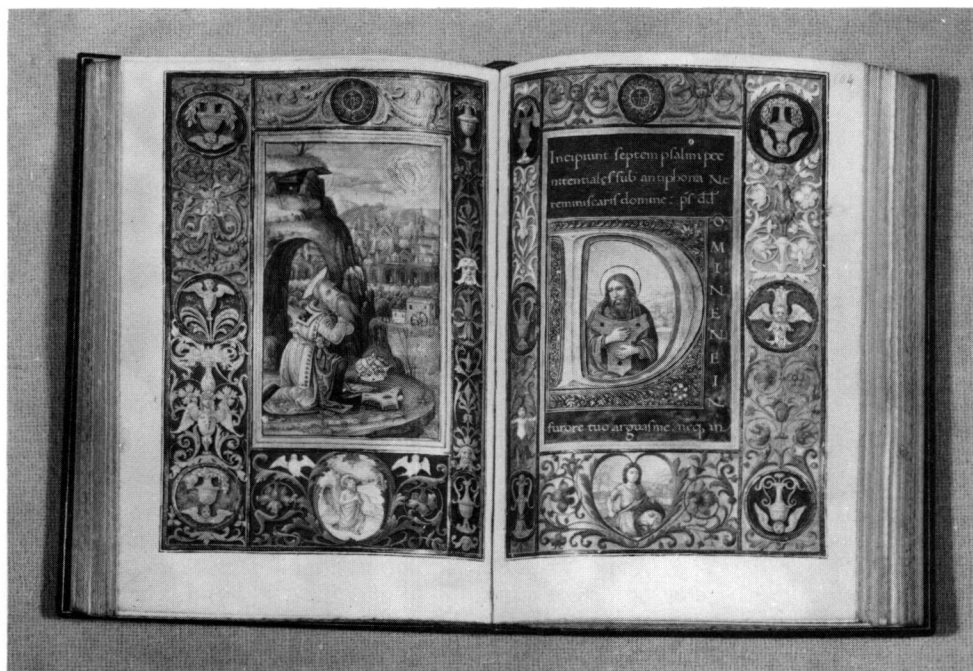 Incipiunt septem psalmi pœ
nitentiales sub antiphona Ne
reminiscaris domine: ps dd
D
OMINE NE IN
furore tuo arguas me: neq, in